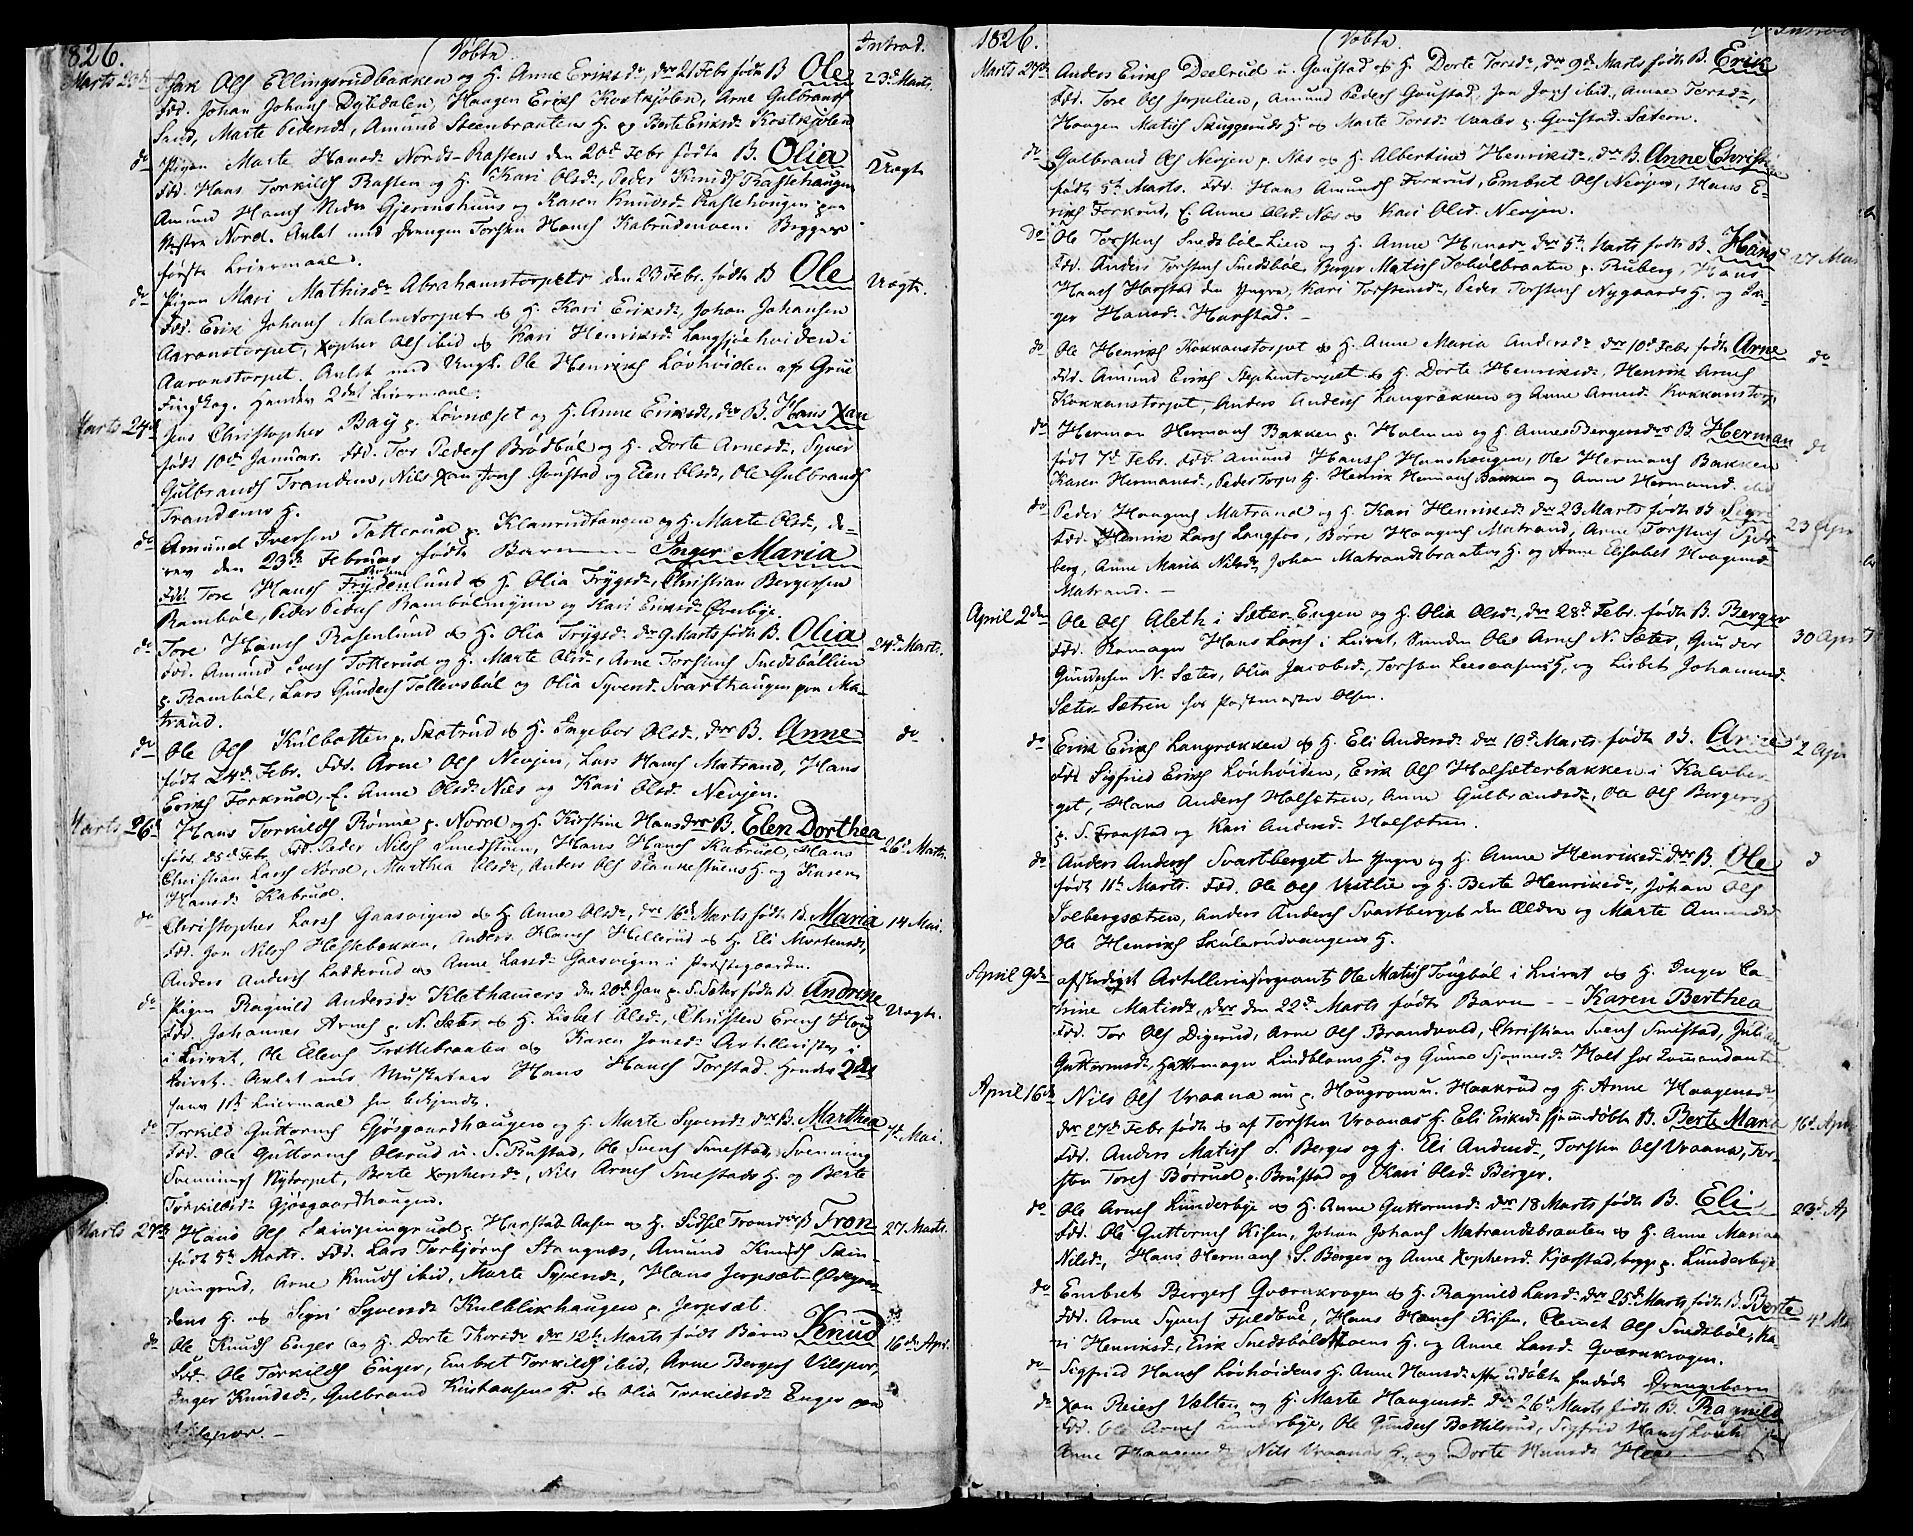 1826. Døbte. Introd.
Marts 20de Isak Ols Ellingsrudbakken og H. Anne Eriksdr, dres 21 Febr fødte B. Ole 23de Marts.
Fdd. Johan Johans Dyhldalen, Haagen Eriks Kostkjølen, Arne Gulbrands
Sand, Marte Pedersdr, Amund Steenbraatens H. og Berte Eriksdr Kostkjølen
do Pigen Marte Hansdr Nordre Rastens den 20de Febr fødte B. Olia Uægte
Fdd. Hans Torkilds Rasten og H. Kari Olsdr, Peder Knuds Rastehaugen
Amund Hans Nedre Gjermshuus og Karen Knudsdr Rastehaugen paa
Vestre Nord. Avlet med Drengen Torsten Hans Kabrudmoen. Begges
første Leiermaal.
do Pigen Mari Mathisdr Abrahamstorpets den 23 Febr. fødte B Ole Uægte.
Fdd. Erik Johans Malmtorpet og H. Kari Eriksdr, Johan Johansen
Aaronstorpet, Xopher Ols ibid og Kari Henriksdr Langsjøehviden i
Aaronstorpet. Avlet med Ungk. Ole Henriks Løvhøiden af Grue
Findskog. Hendes 2det Leiermaal.
Marts 24de Jens Christopher Bay p. Løvnæset og H. Anne Eriksdr, dres B. Hans Xian
født 10de Januar. Fdd. Tor Peders Brødbøl og H. Dorte Arnesdr, Syver
Gulbrands Trandem, Nils Xians Gonstad og Elen Olsdr, Ole Gulbrands
Trandems H.
do Amund Iversen Totterud p. Klanrudtangen og H. Marte Olsdr, de-
res den 23de Februar fødte Barn Inger Maria
Fdd. Tore Hans Frydenlund og H. Olia Trygsdr, Christian Bergersen
Rambøl, Peder Peders Rambølmyren og Kari Eriksdr Øverbye.
do Tore Hans Rosenlund og H. Olia Trygsdr dres 9 Marts fødte B. Olia 24de Marts.
Fdd. Amund Ivers Totterud og H. Marte Olsdr, Arne Torstens Snedsbøllien
p. Rambøl, Lars Gunders Tollevsbøl og Olia Syversdr Svarthaugen paa Ma-
trand.
do Ole Ols Kulbotten p. Skotrud og H. Ingebor Olsdr, dres B. Anne do
født 24de Febr. Fdd. Arne Ols Nevjen, Lars Hans Matrand, Hans
Eriks Forkrud, E. Anne Olsdr Næs og Kari Olsdr Nevjen.
Marts 26de Hans Torkilds Rønne p. Nord og H. Kirstine Hansdr dres B. Elen Dorthea 26de Marts.
født 5de Febr. Fdd. Peder Nils Smedstuen, Hans Hans Kabrud, Hans
Christian Lars Nord, Marthea Olsdr, Anders Ols Plankestuens H. og
Hansdr Kabrud.
do Christopher Lars Gaasvigen og H. Anne Olsdr, dres 16de Marts fødte B. Maria 14 Mai.
Fdd. Jon Nils Hestebækken, Anders Hans Hillerud og H. Eli Mortensdr,
Anders Anders Ladderud og Anne Larsdr Gaasvigen i Præstegaarden.
do Pigen Ragnild Andersdr Klethamers den 20de Jan p. S. Sæter fødte B. Andrine Uægte.
Fdd. Johannes Arnes p. N. Sæter og H. Lisbet Olsdr, Christen Evens Haug
i Leiret, Ole Ellens Trættebraaten og Karen Jonsdr Artilleristen i
Leiret. Avlet med Musketeer Hans Hans Torstad. Hendes 2det
hans 1ste Leiermaal saa bekjendt.
do Torkild Guttorms Gjøsgaardhaugen og H. Marte Syversdr dres B. Marthea 7de Mai.
Fdd. Ole Guttorms Olerud u. S. Rustad, Ole Svens Smestad, Svenning
Svennings Nytorpet, Berte Xophersdr, Nils Arnes Smestads H. og Berte
Torkildsdr Gjøsgaardhaugen.
Marts 27de Hans Ols Skinpingrud p. Harstad Aasen og H. Sidsel Tronsdr dres B. Tron 27 Marts.
født 5te Marts. Fdd. Lars Torbjørns Stangnæs, Amund Knuds Skin-
pingrud, Arne Knuds ibid, Marte Syversdr, Hans Jerpsæt
dens H. og Sigri Syversdr Kulblikhaugen p. Jerpsæt.
do Ole Knuds Enger og H. Dorte Thorsdr dres 12te Marts født Barn Knud 16de Apr.
Fdd. Ole Torkilds Enger, Embret Torkilds ibid, Arne Bergers Vilspør,
Inger Knudsdr, Gulbrand Kustaasens H. og Olia Torkildsdr Enger paa
Vilspør.
1826. Døbte. Introd.
Marts 27de Anders Eriks Deelrud u. Gonstad og H. Dorte Torsdr, dres 9de Marts født B. Erik
Fdd. Tore Ols Jerpelien, Amund Peders Gonstad, Jon Jons ibid, Anne Torsdr,
Haagen Matis Skuggeruds H. og Marte Torsdr Vaaler p. Gonstad Sætern.
do Gulbrand Ols Nevjen p. Næs og H. Albertine Henriksdr, dres B. Anne Christine
født 5te Marts. Fdd. Hans Amunds Forkrud, Embret Ols Nevjen, Hans E-
riks Forkrud, E. Anne Olsdr Næs og Kari Olsdr Nevjen.
do Ole Torstens Snedsbøl Lien og H. Anne Hansdr dres 5te Marts fødte B. Hans 27 Mar
Fdd. Anders Torstens Snedsbøl, Berger Matis Tobølbraaten p. Ruberg, Hans
Hans Harstad den Yngre, Kari Torstensdr, Peder Torstens Nygaards H. og In-
ger Hansdr Harstad.
do Ole Henriks Kokkanstorpet og H. Anne Maria Andersdr dres 10de Febr fødte Arne do
Fdd. Amund Eriks Stephentorpet og H. Dorte Henriksdr, Henrik Arnes
Kokkanstorpet, Anders Anders Langrækken og Anne Arnesdr Kokkanstorp
do Herman Hermans Bakken p. Holmen og H. Anne Bergersdr dres B Herman do
født 7de Febr. Fdd. Amund Hans Hanshaugen, Ole Hermans Bakken
Karen Hermansdr, Peder Torps H. Henrik Hermans Bakken og Anne Hermansdr ibid
do Peder Haagens Matrand og H. Kari Henriksdr dres 23 Marts født B Sigri 23 Apr
Fdd. Henrik Lars Langfos, Børre Haagens Matrand, Arne Torstens
berg, Anne Maria Nilsdr, Johan Matrandsbraatens H. og Anne Elisabet Haagensdr
Matrand.
April 2den Ole Ols Aleth i Sæter Engen og H. Olia Olsdr, dres 28de Febr. fødte B. Berger 30 Apr
Fdd. Hans Lars i Leiret, Svenden Ole Arnes N. Sæter, Gunder
Gundersen N. Sæter, Olia Jacobsdr, Torsten H. og Lisbet Johannesd
Sæter Sætren hos Postmester Olsen.
do Erik Eriks Langrækken og H. Eli Andersdr dres 10de Marts fødte B. Arne 2 Apr
Fdd. Sigfried Eriks Løvhviden, Erik Ols Holsæterbakken i Kalvber-
get, Hans Anders Holsætren, Anne Gulbrandsdr, Ole Ols Bergers H
p. S. Fronstad og Kari Andersdr Holsætren.
do Anders Anders Svartberget den Yngre og H. Anne Henriksdr dres B. Ole
født 11te Marts. Fdd. Ole Ols Vestlie og H. Berte Henriksdr, Johan Ols
Solbergsætren, Anders Anders Svartberget den Ældre og Marte Amundsdr
Ole Henriks Skulerudvangens H.
April 9de afskediget Artilleriesergeant Ole Matis Tougbøl i Leiret og H. Inger Ca-
thrine Matisdr, dres den 22de Marts fødte Barn Karen Berthea
Fdd. Tor Ols Digerud, Arne Ols Brandvold, Christian Svens Smestad, Juliane
Guttormsdr, Hattemager Lindbloms H. og Gunor Simensdr Holt hos Commandant
April 16de Nils Ols Vraana nu p. Haugrom u. Haakrud og H. Anne Haagensdr
dres 27de Febr fødte og af Torsten Vraanas H. Eli Eriksdr hjemmedøbte B. Berte Maria 16de Apr
Fdd. Anders Matis S. Berger og H. Eli Andersdr, Torsten Ols Vraana, Tor-
sten Tores Børrud p. Brustad og Kari Olsdr Berger.
do Ole Arnes Lunderbye og H. Anne Guttormsdr dres 18 Marts fødte B. Eli 23de Ap
Fdd. Ole Guttorms Kisen, Johan Johans Matrandsbraaten og H. Anne Maria
Nilsdr, Hans Hermans S. Berger og Anne Xophersdr Kjerstad, begge p. Lunderbye
do Embret Bergers Qværnkrogen og H. Ragnild Larsdr dres 25de Marts fødte B. Berte 4de Ma
Fdd. Arne Syvers Fjeldboe, Hans Hans Kisen, Clemet Ols Snedsbøl, Ka-
ri Henriksdr, Erik Snedsbøl Moens H. og Anne Larsdr Qværnkrogen.
do Sigfried Hans Løvhvidens H. Anne Hansdr udøbte Drengebarn
do Xian Reiers Velten og H. Marte Haagensdr dres 26de Marts fødte B. Ragnild
Fdd. Ole Arnes Lunderbye, Ole Gunders Bottilsrud, Sigfried Hans Løvh
Anne Haagensdr, Nils Vraanas H. og Dorte Hansdr